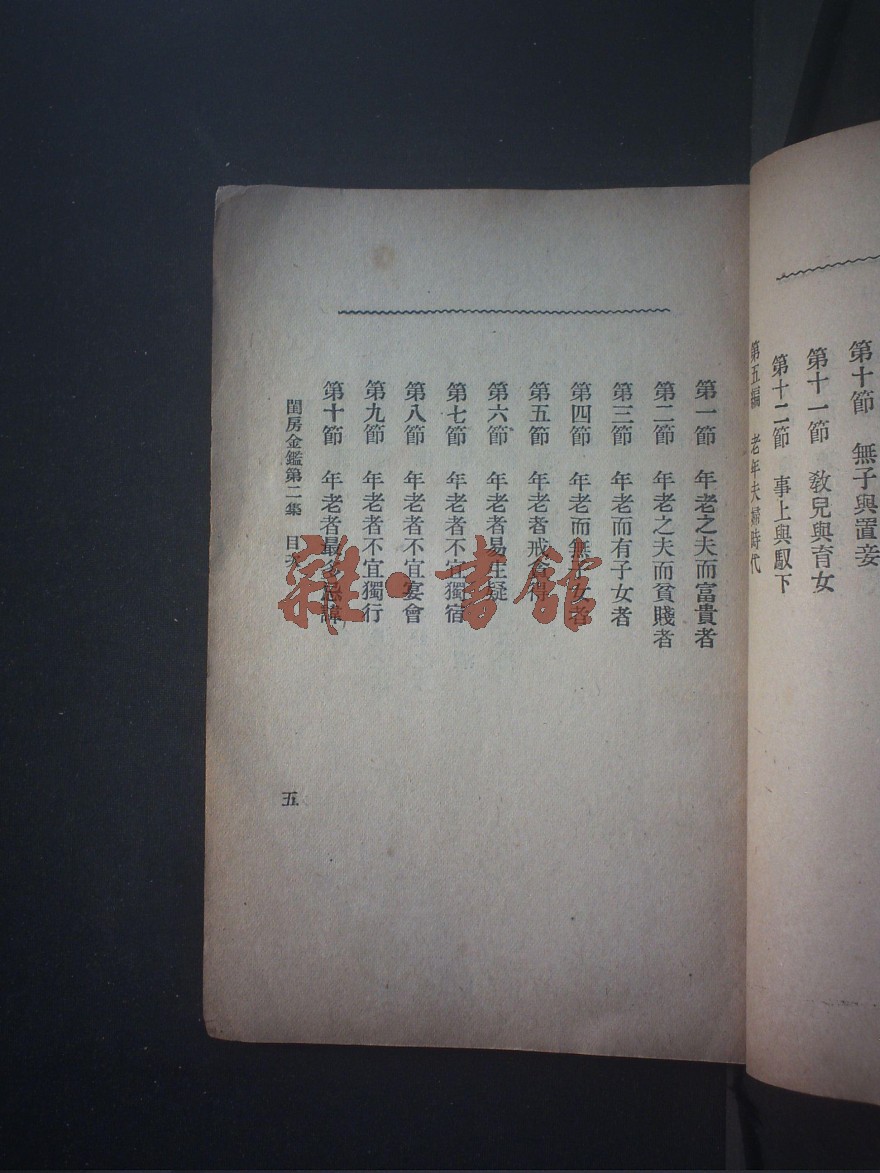 第十節 無子與置妾
第十一節 教兒與育女
第十二節 事上與馭下
第五編 老年夫婦時代
第一節 年老之夫而富貴者
第二節 年老之夫而貧賤者
第三節 年老而有子女者
第四節 年老而無子女者
第五節 年老者戒貪得
第六節 年老者易生疑
第七節 年老者不宜獨宿
第八節 年老者不宜宴會
第九節 年老者不宜獨行
第十節 年老者最多忌諱
閨房金鑑第二集 目次
五
雜·書館